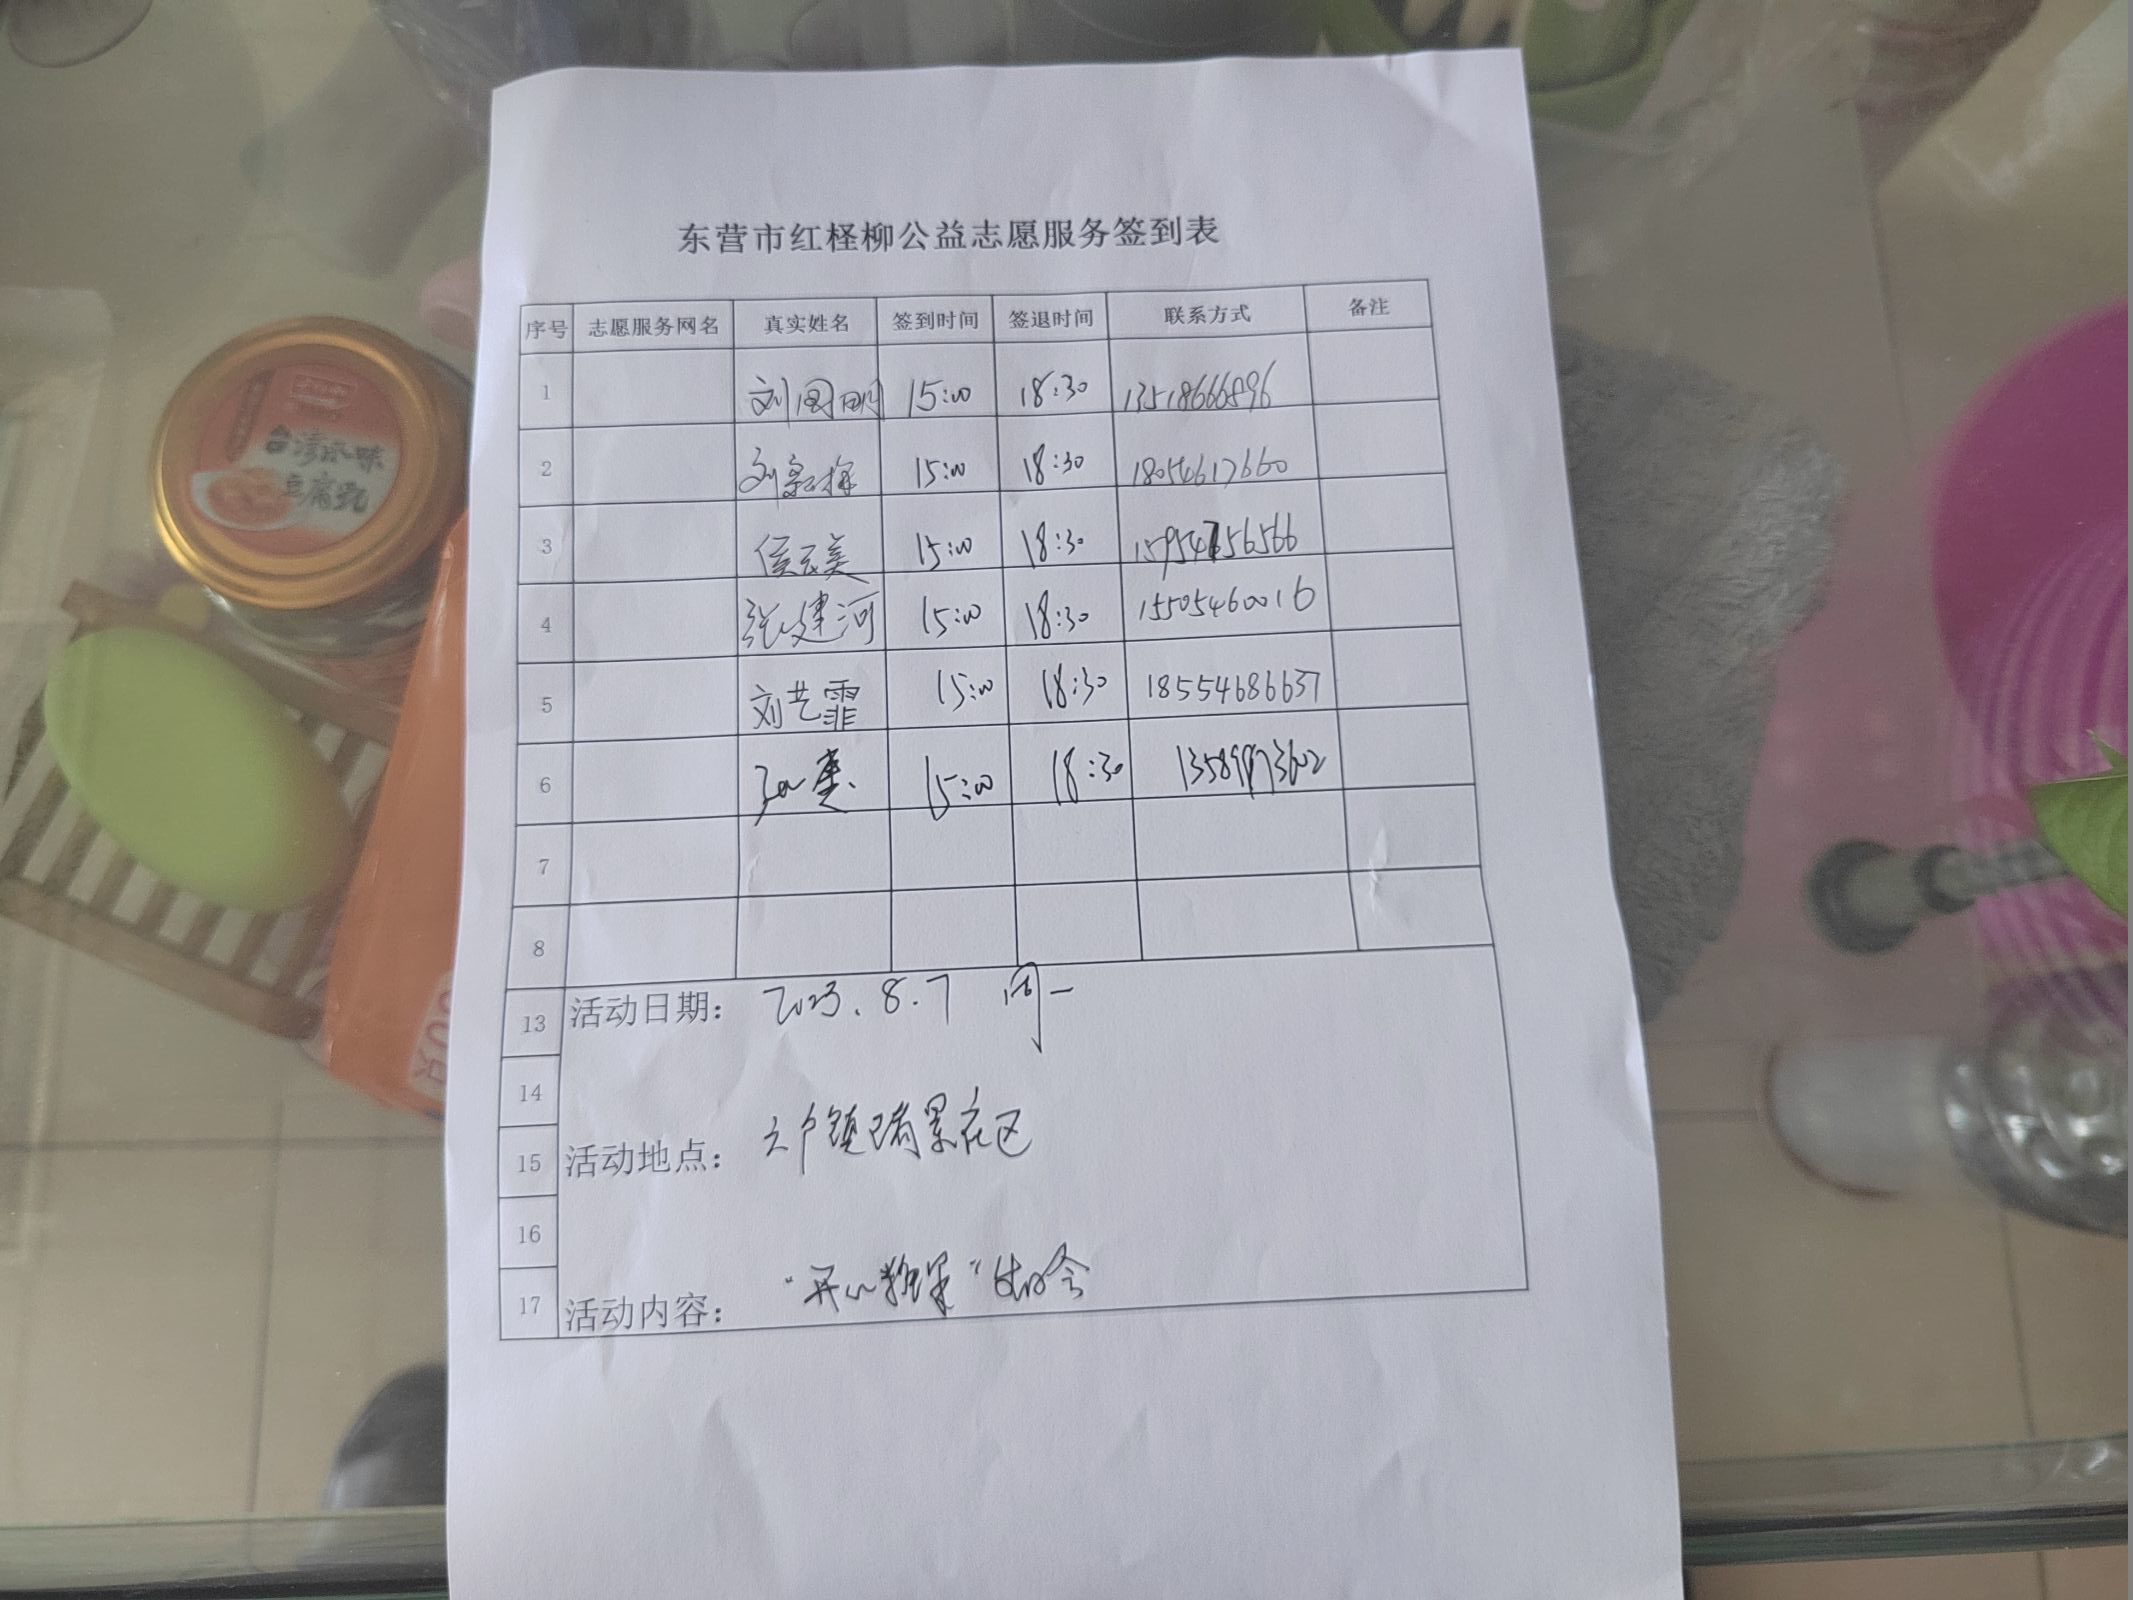 东营市红柽柳公益志愿服务签到表
序号 志愿服务网名 真实姓名 签到时间 签退时间 联系方式 备注
1 刘国明 15:00 18:30 13518666896
2 刘 15:00 18:30 18054617660
3 侯云美 15:00 18:30 15954756566
4 张建河 15:00 18:30 15505460016
5 刘艺霏 15:00 18:30 18554686637
6 15:00 18:30 13589973602
7
8
13 活动日期： 2023.8.7 周一
14
15 活动地点： 六户镇瑞景社区
16
17 活动内容： "开心糖果"
台湾风味
豆腐乳